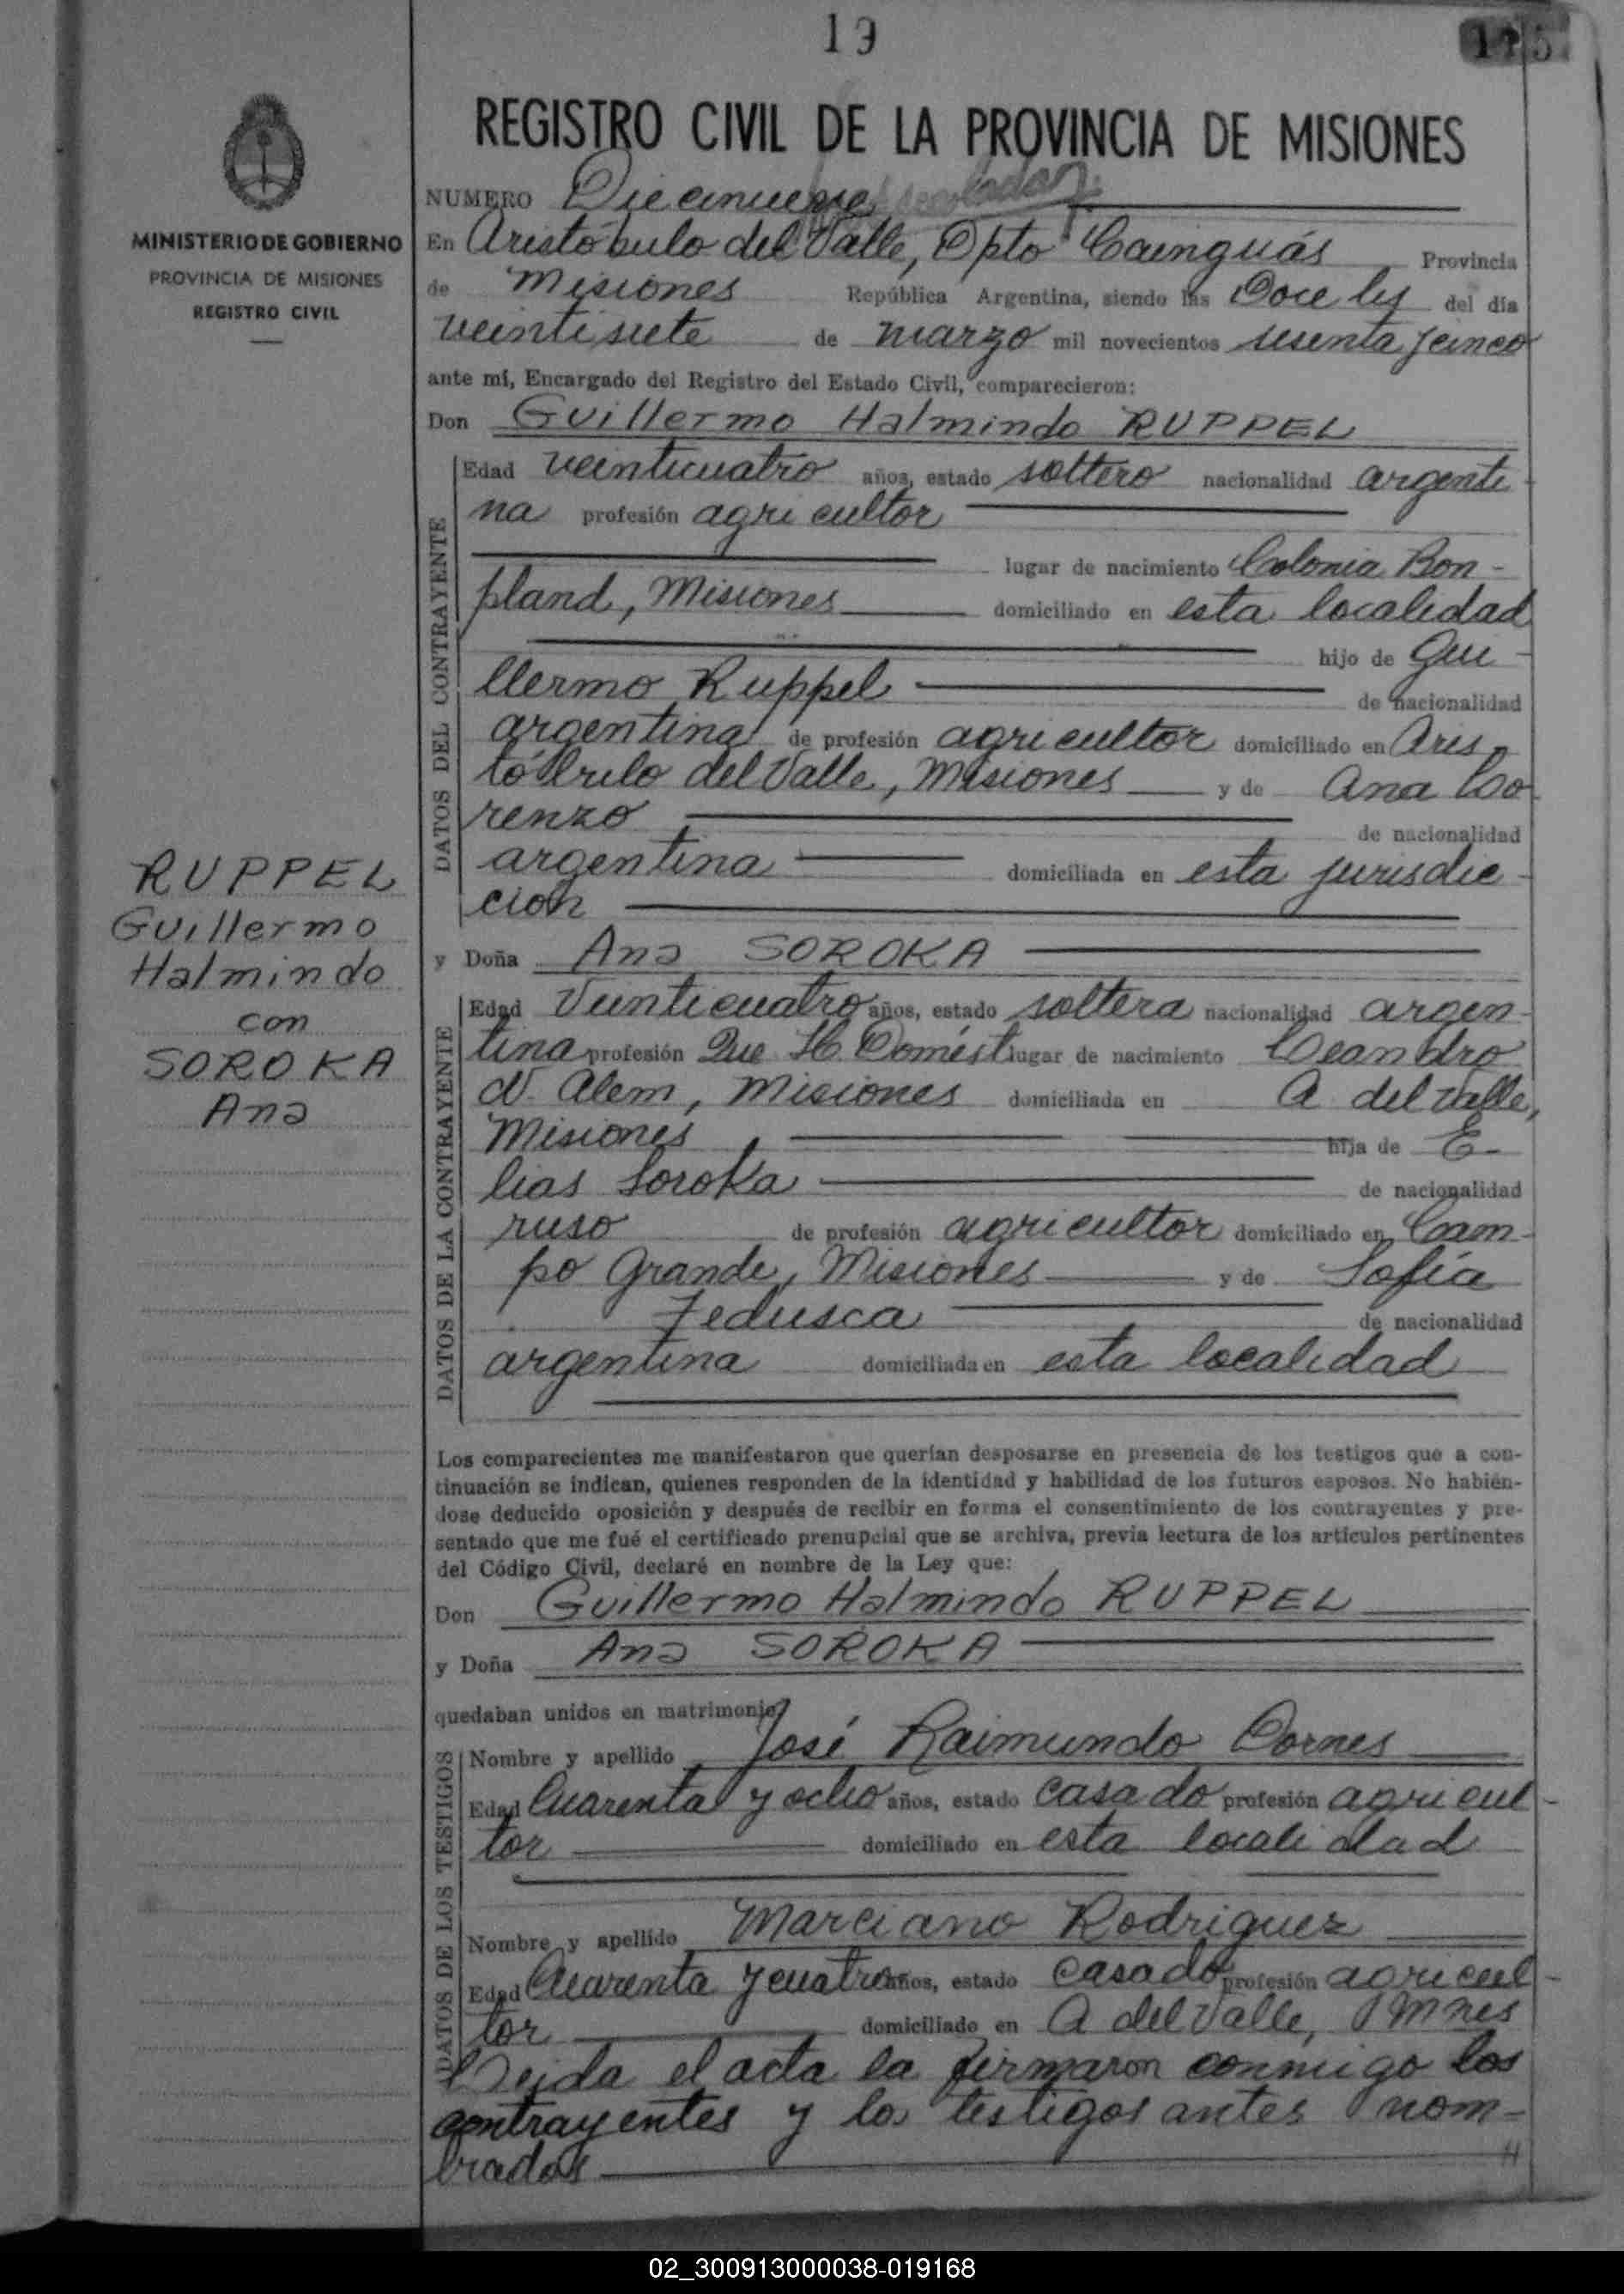 19
REGISTRO CIVIL DE LA PROVINCIA DE MISIONES
MINISTERIO DE GOBIERNO
PROVINCIA DE MISIONES
REGISTRO CIVIL
RUPPEL
Guillermo
Halmindo
con
SOROKA
Ana
NUMERO Diecinueve
En Aristóbulo del Valle, Dpto Cainguás Provincia
de Misiones República Argentina, siendo las Doce hs del día
veintisiete de marzo mil novecientos sesenta y cinco
ante mí, Encargado del Registro del Estado Civil, comparecieron:
Don Guillermo Halmindo RUPPEL
DATOS DEL CONTRAYENTE
Edad veinticuatro años, estado soltero nacionalidad argenti
na profesión agricultor
lugar de nacimiento Colonia Bon-
pland, Misiones domiciliado en esta localidad
hijo de Gui-
llermo Ruppel de nacionalidad
argentina de profesión agricultor domiciliado en Aris
tóbulo del Valle, Misiones y de Ana Lo
renzo de nacionalidad
argentina domiciliada en esta jurisdic-
ción
y Doña Ana SOROKA
DATOS DE LA CONTRAYENTE
Edad Veinticuatro años, estado soltera nacionalidad argen-
tina profesión Que H. Domést lugar de nacimiento Leandro
N. Alem, Misiones domiciliada en A del Valle,
Misiones hija de E-
lias Soroka de nacionalidad
ruso de profesión agricultor domiciliado en Cam-
po Grande, Misiones y de Sofía
Fedusca de nacionalidad
argentina domiciliada en esta localidad
Los comparecientes me manifestaron que querían desposarse en presencia de los testigos que a con-
tinuación se indican, quienes responden de la identidad y habilidad de los futuros esposos. No habién-
dose deducido oposición y después de recibir en forma el consentimiento de los contrayentes y pre-
sentado que me fué el certificado prenupcial que se archiva, previa lectura de los artículos pertinentes
del Código Civil, declaré en nombre de la Ley que:
Don Guillermo Halmindo RUPPEL
y Doña Ana SOROKA
quedaban unidos en matrimonio
DATOS DE LOS TESTIGOS
Nombre y apellido José Raimundo Dornes
Edad Cuarenta y ocho años, estado casado profesión agricul-
tor domiciliado en esta localidad
Nombre y apellido Marciano Rodriguez
Edad Cuarenta y cuatro años, estado casado profesión agricul-
tor domiciliado en A del Valle, Mnes
Leida el acta la firmaron conmigo los
contrayentes y los testigos antes nom-
brados
02_300913000038-019168